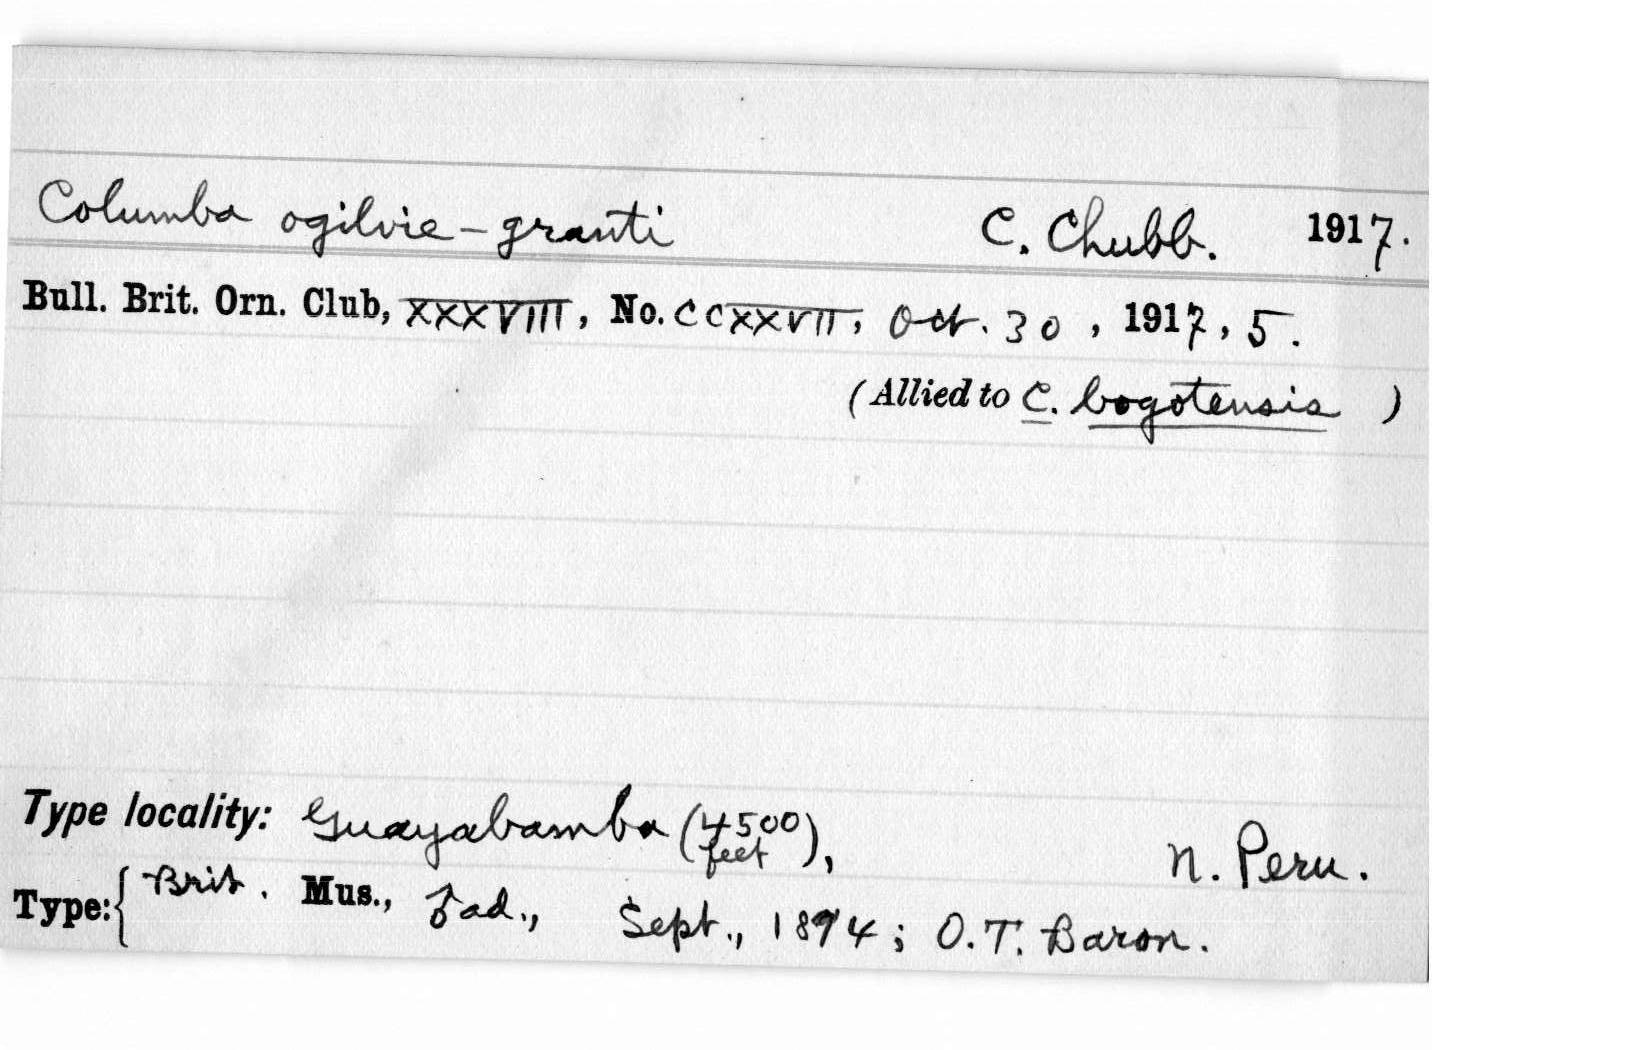 Columba ogilvie-granti C. Chubb. 1917.
Bull. Brit. Orn. Club, XXXVIII, No. CCXXVII, Oct. 30, 1917, 5.
(Allied to C. bogotensis )
Type locality: Guayabamba (4500 feet), N. Peru.
Type: { Brit. Mus., ♂ad., Sept., 1894; O.T. Baron.